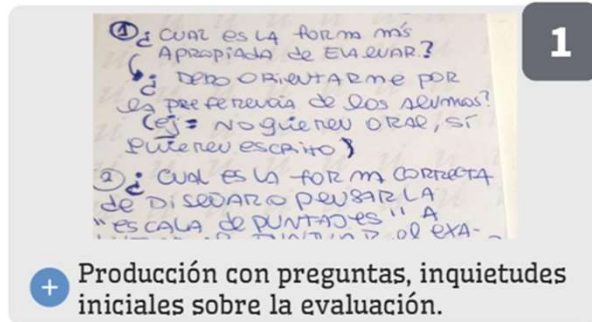 1
① ¿ CUAL ES LA FORMA MÁS
APROPIADA de EVALUAR?
¿ DEBO ORIENTARME POR
la PREFERENCIA de los ALUMNOS?
(ej: NO quieren ORAL, SÍ
quieren escrito)
② ¿ CUAL ES LA FORMA CORRECTA
de DISEÑAR O PENSAR LA
"ESCALA de PUNTAJES" A
el EXA-
+ Producción con preguntas, inquietudes
iniciales sobre la evaluación.